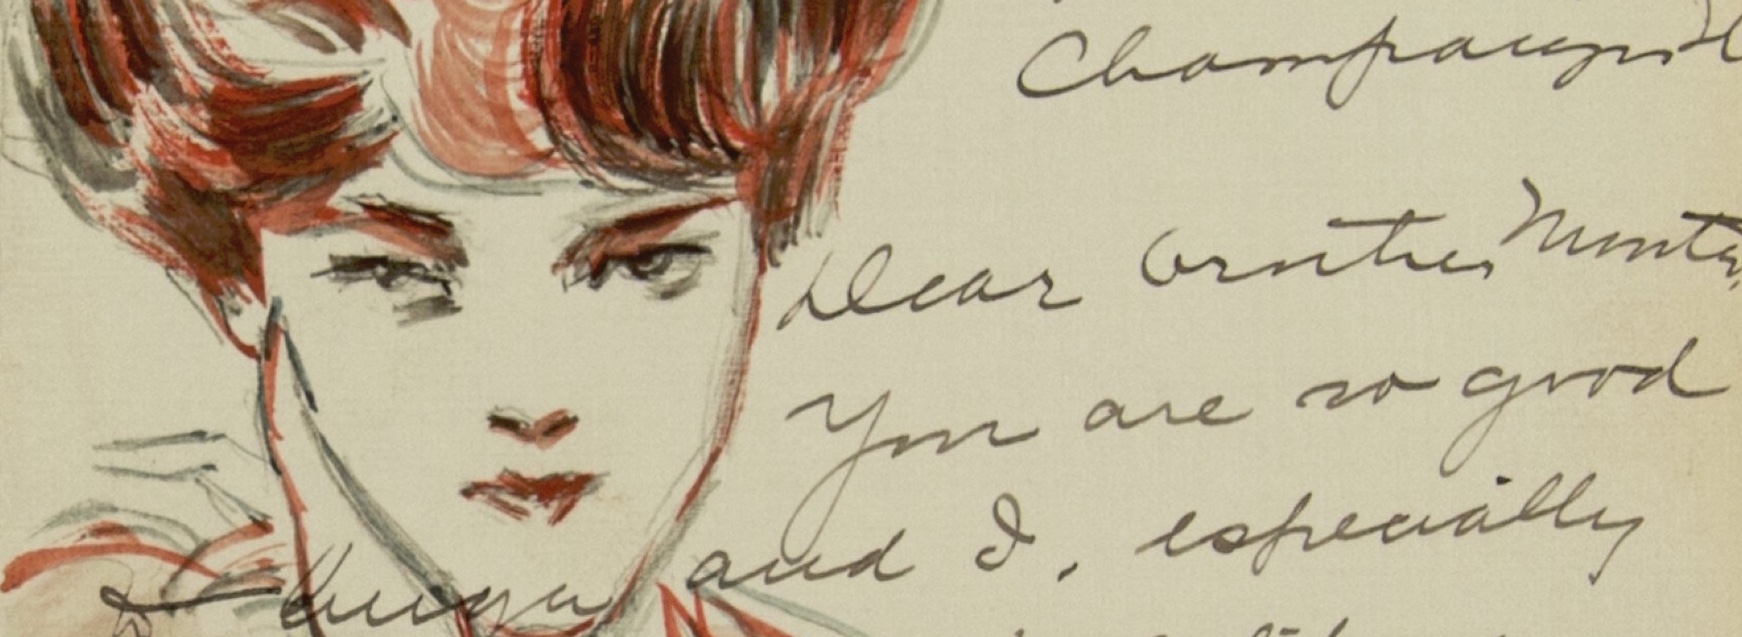 Champaign Il
Dear brother Monta,
You are so good
and I, especially